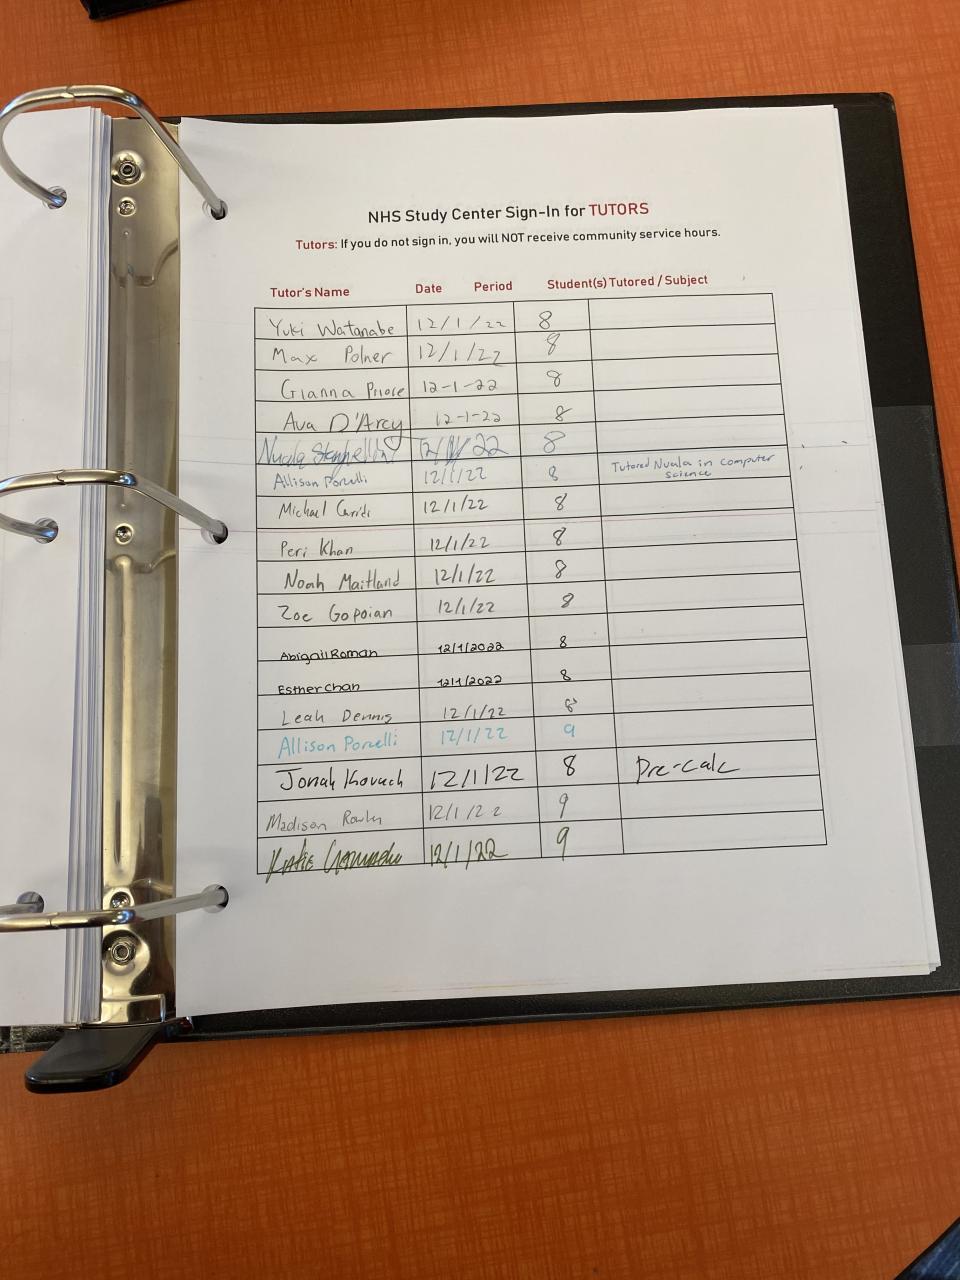 NHS Study Center Sign-In for TUTORS
Tutors: If you do not sign in, you will NOT receive community service hours.
Tutor's Name Date Period Student(s) Tutored / Subject
Yuki Watanabe 12/1/22 8
Max Polner 12/1/22 8
Gianna Priore 12-1-22 8
Ava D'Arcy 12-1-22 8
Nuala 12/1/22 8
Allison Porcelli 12/1/22 8 Tutored Nuala in computer
science
Michael 12/1/22 8
Peri Khan 12/1/22 8
Noah Maitland 12/1/22 8
Zoe Gopoian 12/1/22 8
Abigail Roman 12/1/2022 8
Esther Chan 12/1/2022 8
Leah Dennis 12/1/22 8
Allison Porcelli 12/1/22 9
Jonah Kovach 12/1/22 8 Pre-calc
Madison 12/1/22 9
Katie 12/1/22 9